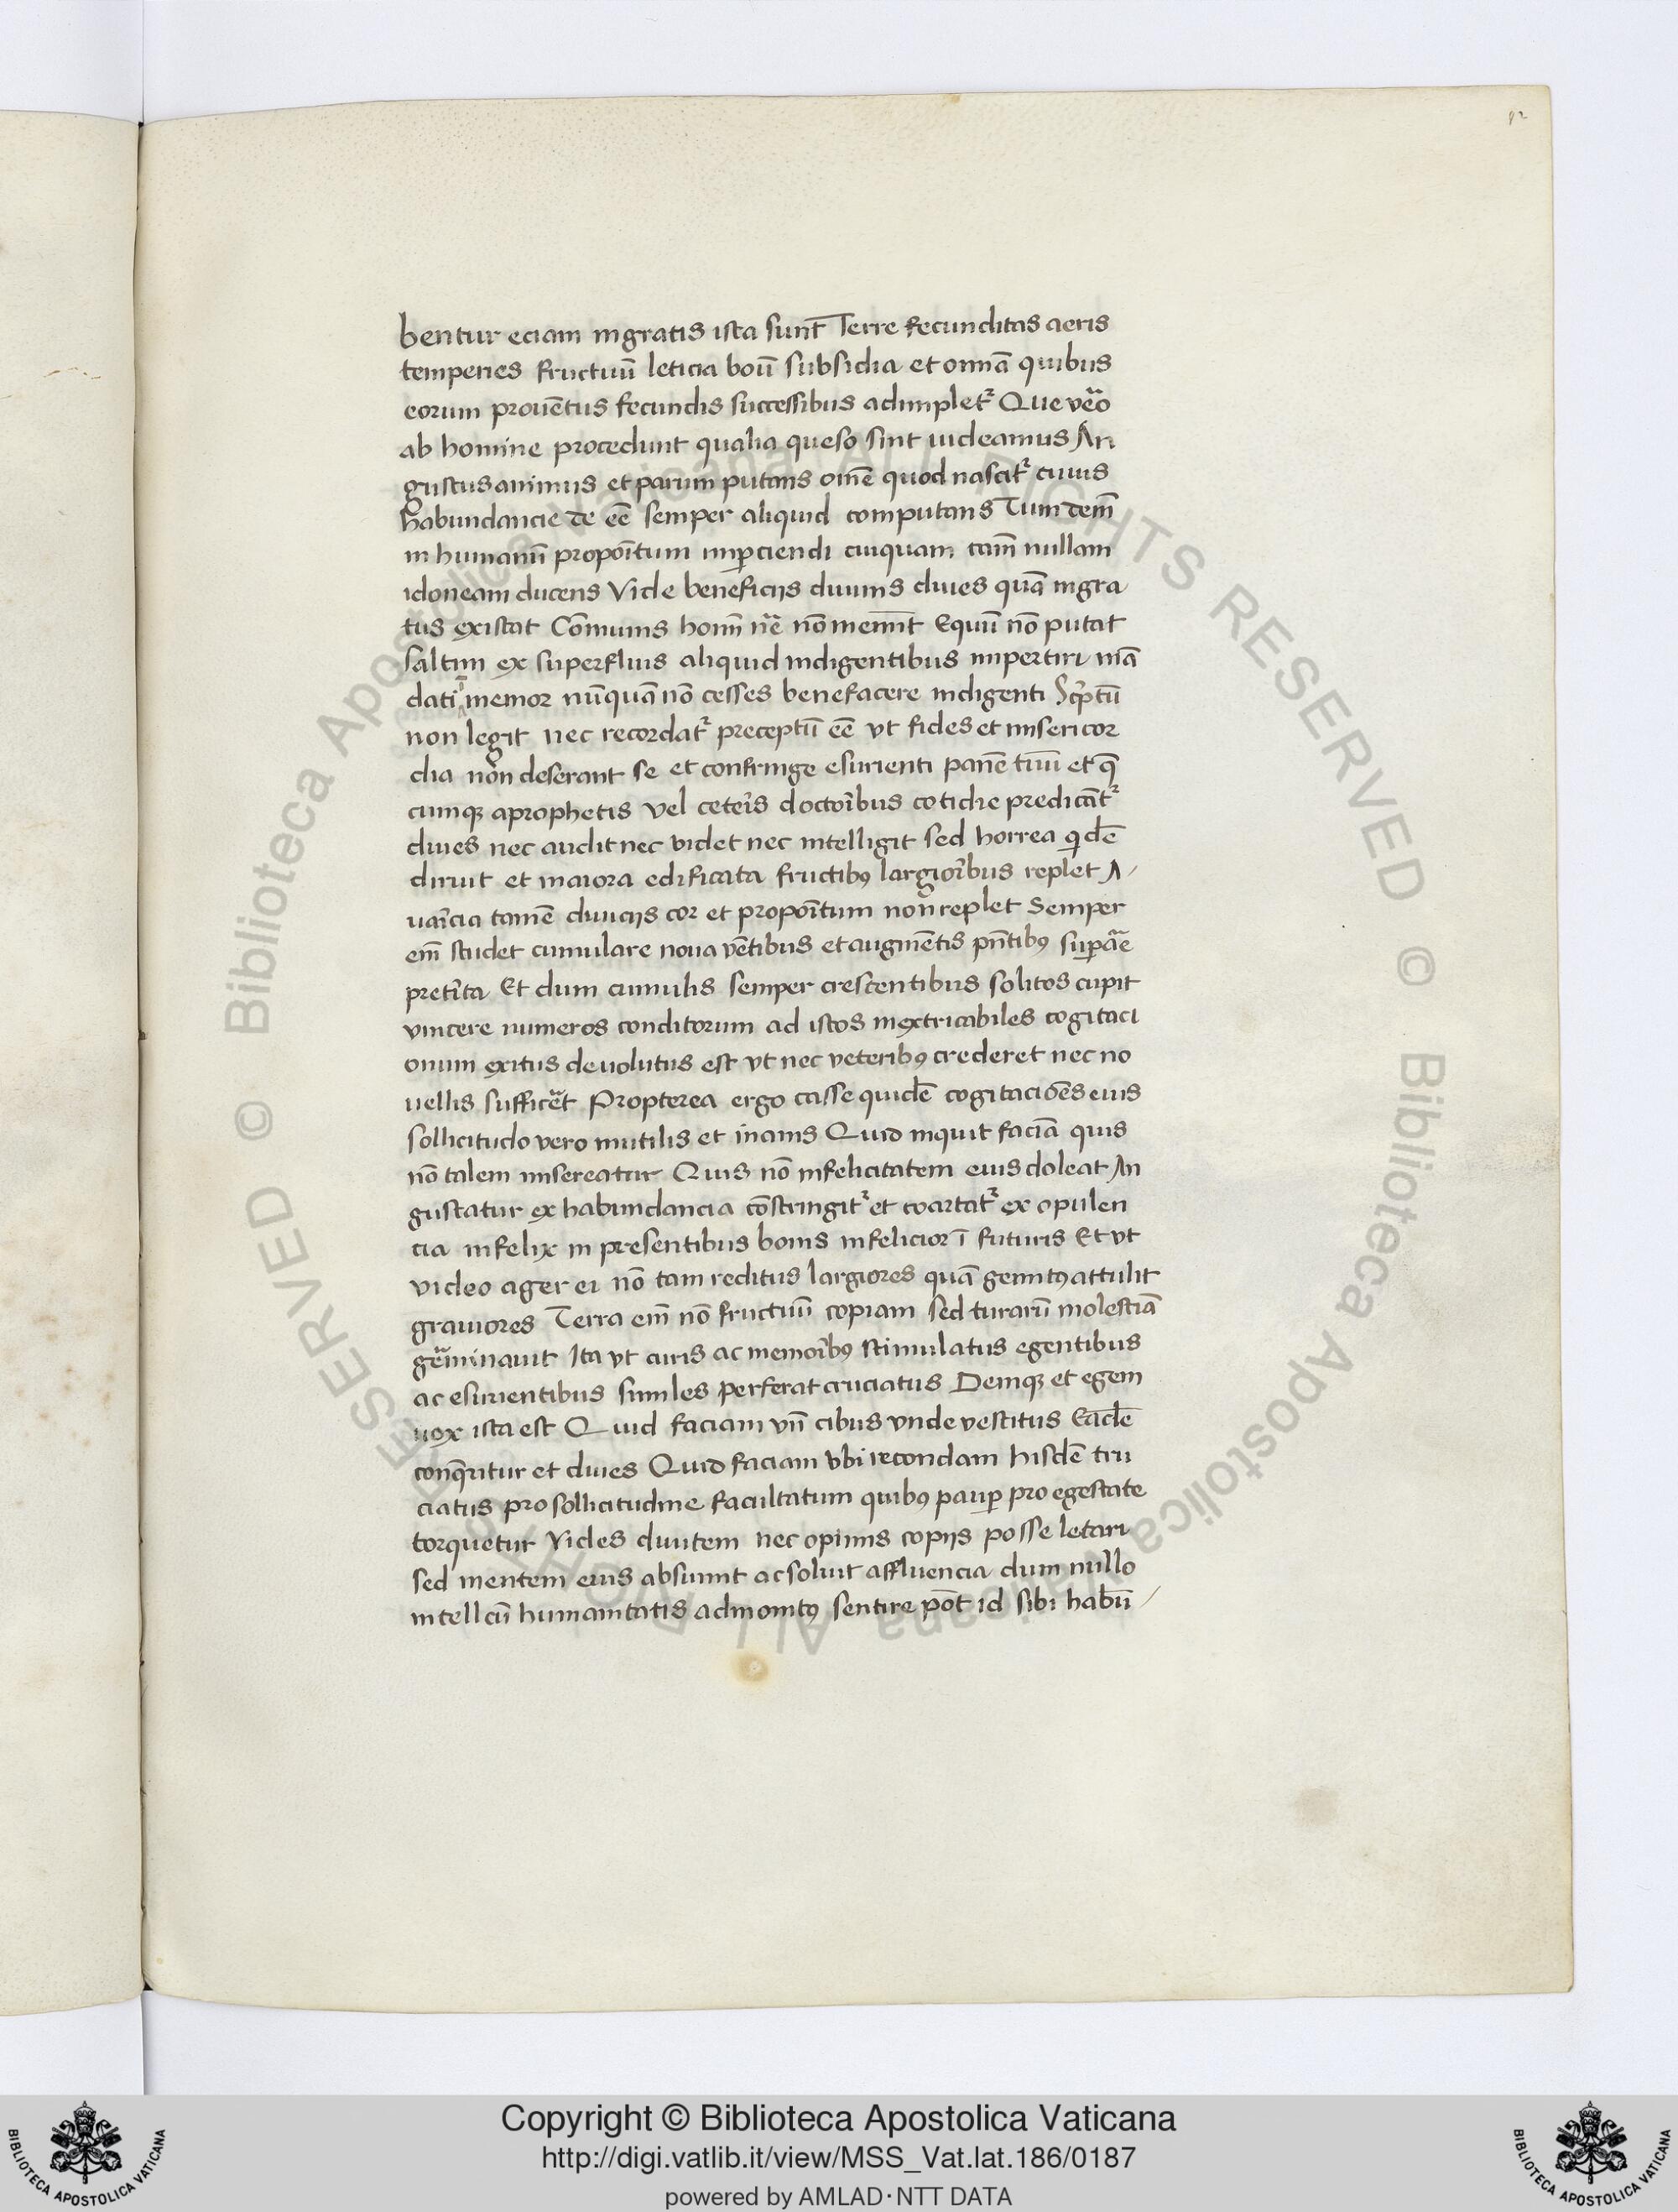 92
bentur eciam ingratis ista sunt Terre fecunditas aeris
temperies fructuū leticia boū subsidia et omīa quibus
eorum prouētus fecundis successibus adimpletᷣ Que vēo
ab homine procedunt qualia queso sint uideamus An
gustus animus et parum putans omē quod nascitᷣ cuius
habundancie de eē semper aliquid computans Tum dem̄
in humanū propoītum imꝑciendi cuiquam tam̄ nullam
idoneam ducens Vide beneficijs diuinis diues quā ingra
tus existat Cōmunis hom̄ nē nō memīt Equū nō putat
saltim ex superfluis aliquid indigentibus impertiri mā
dati memor nūquā nō cesses benefacere indigenti Scͥptū
non legit nec recordatᷣ preceptū eē vt fides et misericor
dia nōn deserant se et confringe esurienti panē tuū et q̄
cumqꝫ aprophetis vel ceteīs doctoībus cotidie predicātᷣ
diues nec audit nec videt nec intelligit sed horrea qͥdē
diruit et maiora edificata fructibꝰ largioībus replet A/
uaīcia tamē diuicijs cor et propoītum non replet Semper
em̄ studet cumulare noua vētibus et augmētis pn̄tibꝰ suꝑāe
pretīta Et dum cumulis semper crescentibus solitos cupit
vincere numeros conditorum ad istos inextricabiles cogitaci
onum exitus deuolutus est vt nec veteribꝰ crederet nec no
uellis sufficēt Propterea ergo casse quidē cogitaciōes eius
sollicitudo vero inutilis et inanis Quid inquit faciā quis
nō talem misereatur Quis nō infelicitatem eius doleat An
gustatur ex habundancia cōstringitᷣ et coartatᷣ ex opulen
cia infelix in presentibus bonis infelicior ī futuris Et vt
video ager ei nō tam reditus largiores quā gemitꝰ attulit
grauiores Terra em̄ nō fructuū copiam sed curarū molestiā
gēminauit Ita vt curis ac memoībꝰ stimulatus egentibus
ac esurientibus similes perferat cruciatus Deniqꝫ et egem
uox ista est Quid faciam vn̄ cibus vnde vestitus Eadē
conq̄ritur et diues Quid faciam vbi recondam hisdē cru
ciatus pro sollicitudine facultatum quibꝰ pauꝑ pro egestate
torquetur Vides diuitem nec opimis copijs posse letari
sed mentem eius absumit ac soluit affluencia dum nullo
intellcū humanitatis admonitꝰ sentire pōt id sibi habūī/
© Biblioteca Apostolica Vaticana ALL RIGHTS RESERVED
© Biblioteca Apostolica Vaticana ALL RIGHTS RESERVED
BIBLIOTECA APOSTOLICA VATICANA
Copyright © Biblioteca Apostolica Vaticana
http://digi.vatlib.it/view/MSS_Vat.lat.186/0187
powered by AMLAD·NTT DATA
BIBLIOTECA APOSTOLICA VATICANA